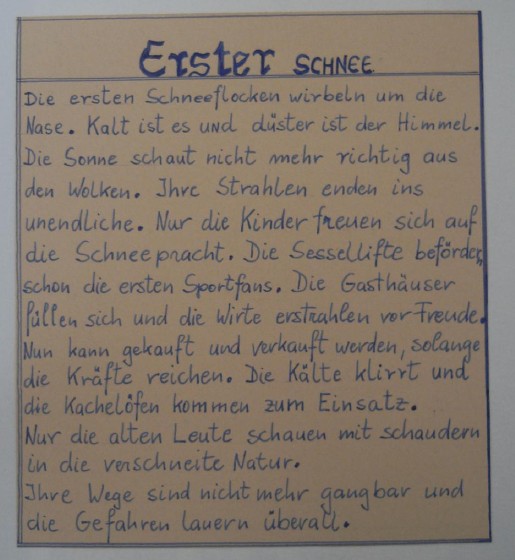 Erster SCHNEE
Die ersten Schneeflocken wirbeln um die
Nase. Kalt ist es und düster ist der Himmel.
Die Sonne schaut nicht mehr richtig aus
den Wolken. Ihre Strahlen enden ins
unendliche. Nur die Kinder freuen sich auf
die Schneepracht. Die Sessellifte befördern
schon die ersten Sportfans. Die Gasthäuser
füllen sich und die Wirte erstrahlen vor Freude.
Nun kann gekauft und verkauft werden, solange
die Kräfte reichen. Die Kälte klirrt und
die Kachelöfen kommen zum Einsatz.
Nur die alten Leute schauen mit schaudern
in die verschneite Natur.
Ihre Wege sind nicht mehr gangbar und
die Gefahren lauern überall.